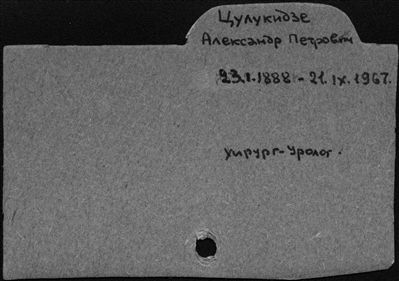 Цулукидзе
Александр Петрович
23.I.1888 - 21.IX.1967.
хирург-уролог.